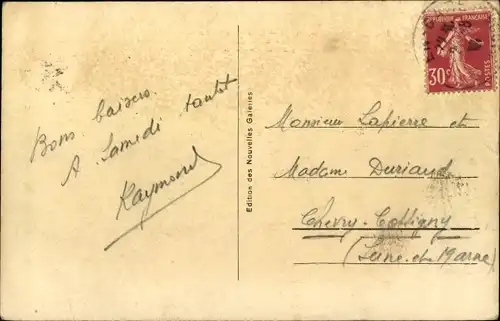 Bons baisers
A Samedi tantôt
Raymond
Edition des Nouvelles Galeries
REPUBLIQUE FRANÇAISE
30c
POSTES
Monsieur Lapierre et
Madame Duriaud
Chevry-Cossigny
(Seine et Marne)